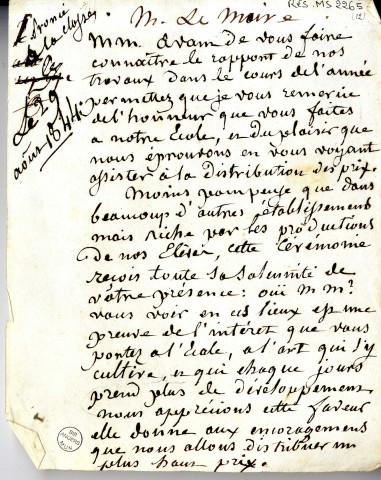 RES. MS 2265
(12)
M. Le Maire
Prononcé
à la
Le 29
août 1844.
MM. Avam de vous faire
connaître le rapport de nos
travaux dans le cours de l'année
permettez que je vous remercie
de l'honneur que vous faites
a notre Ecole, et du plaisir que
nous éprouvons en vous voyant
assister à la distribution des prix.
Moins pompeuse que dans
beaucoup d'autres établissement
mais riche par les productions
de nos Elèves, cette Cérémonie
reçois toute sa solemnité de
vôtre présence: oüi MM.
vous voir en ces lieux est une
preuve de l'intéret que vous
portez a l'Ecole, a l'art qui s'y
cultive, et qui chaque jours
prend plus de développement
nous apprécions cette faveur
elle donne aux encouragemens
que nous allons distribuer un
plus haut prix.